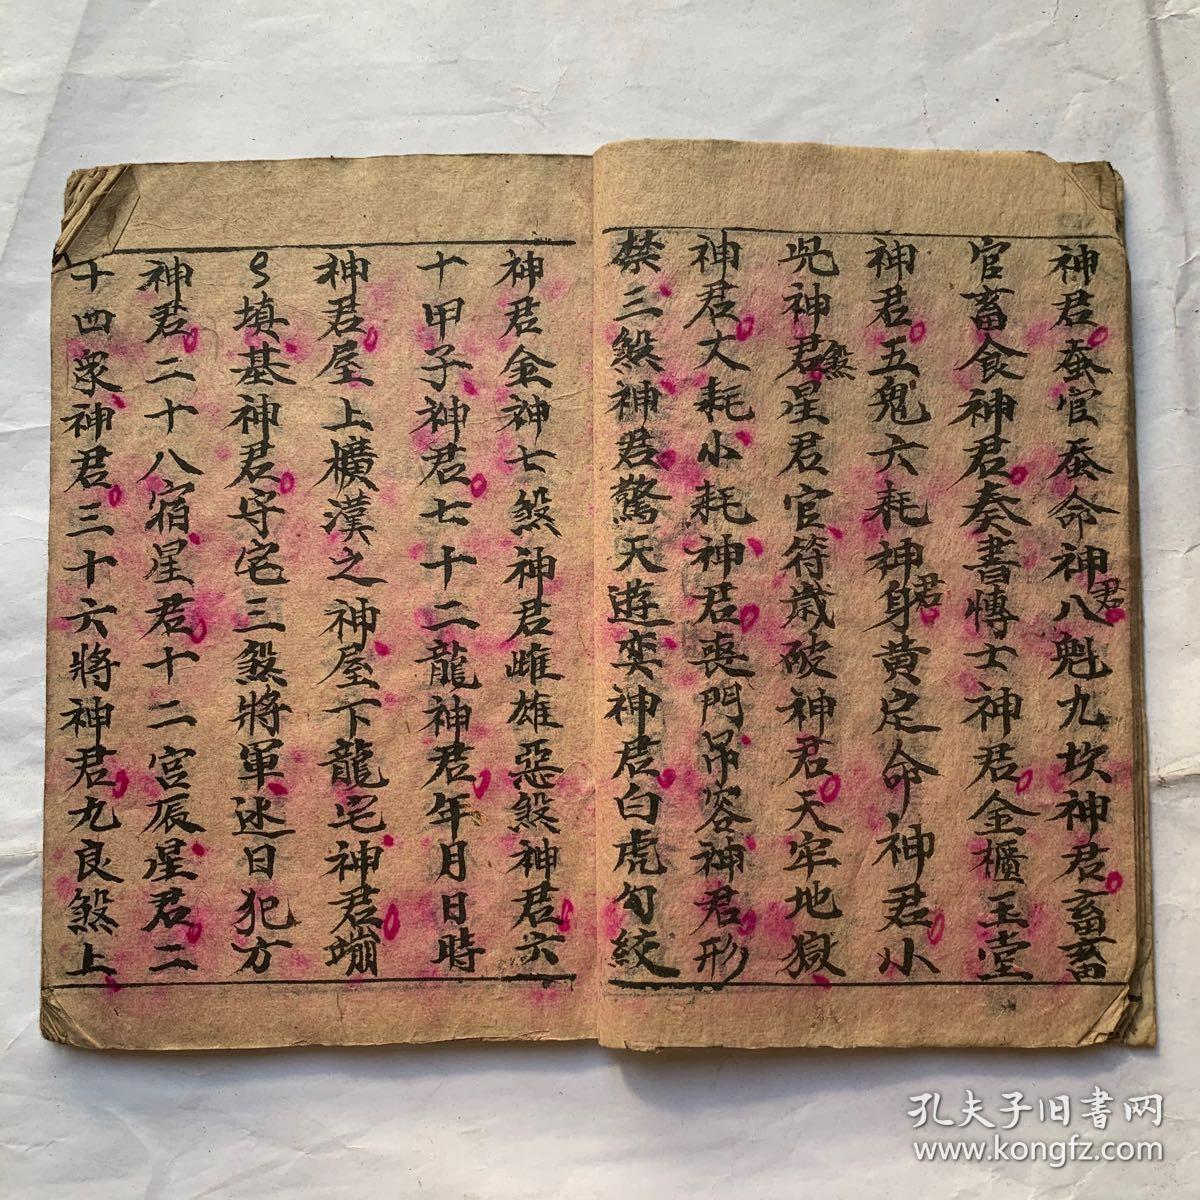 神君蚕官蚕命神君八魁九坎神君畜
官畜食神君奏書博士神君金櫃玉堂
神君五鬼六耗神君身黄定命神君小
児神君煞星君官符歳破神君天牢地獄
神君大耗小耗神君喪門吊客神君形
禁三煞神君驚天遊奕神君白虎勾絞
神君金神七煞神君雌雄惡煞神君六
十甲子神君七十二龍神君年月日時
神君屋上横漢之神屋下龍宅神君
填基神君守宅三煞將軍迷日犯方
神君二十八宿星君十二宫辰星君二
十四衆神君三十六將神君九良煞上
孔夫子旧书网
www.kongfz.com